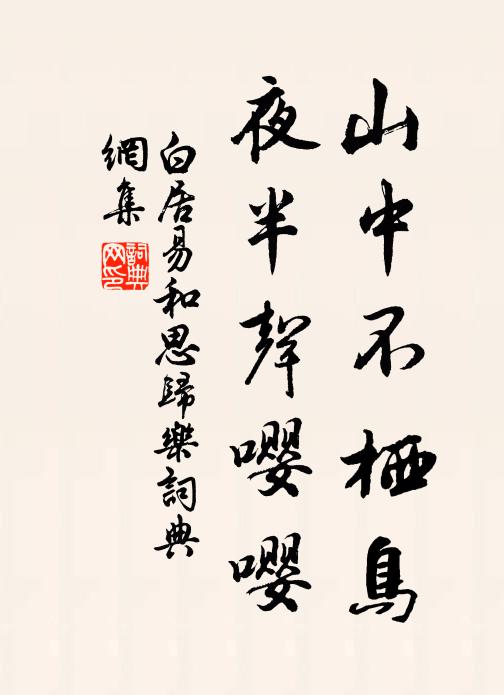 山中不栖鳥
夜半聲嚶嚶
白居易和思歸樂詞典
網集
詞典網印